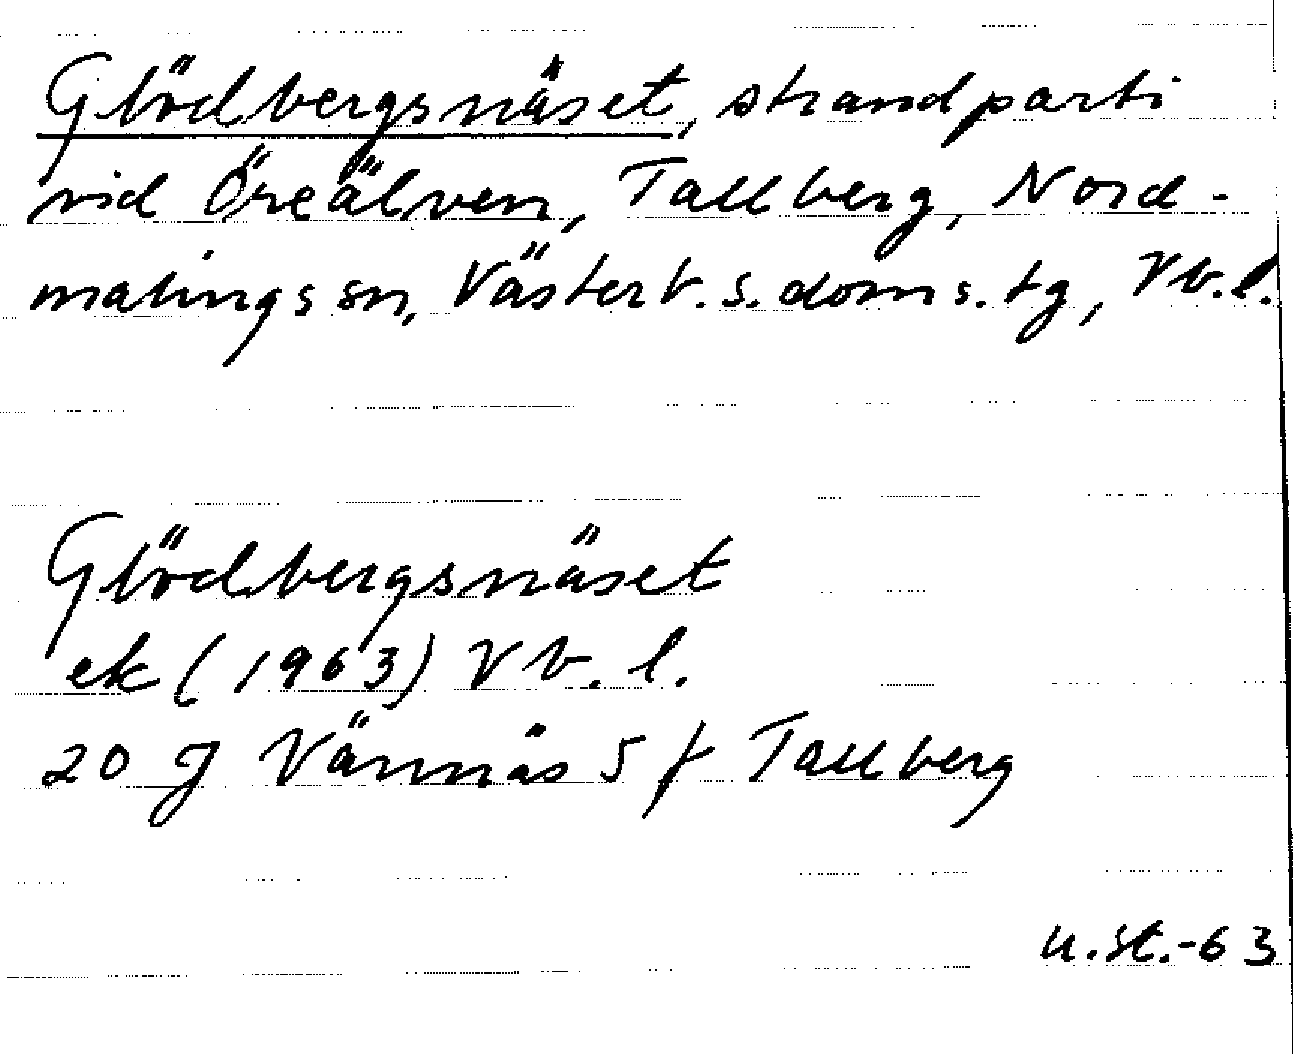 Glödbergsnäset, strandparti
vid Öreälven, Tallberg, Nord-
malings sn, Västerb. s. doms. tg, Vb. l.
Glödbergsnäset
ek (1963) Vb. l.
20 J Vännäs 5 f Tallberg
u.st.-63